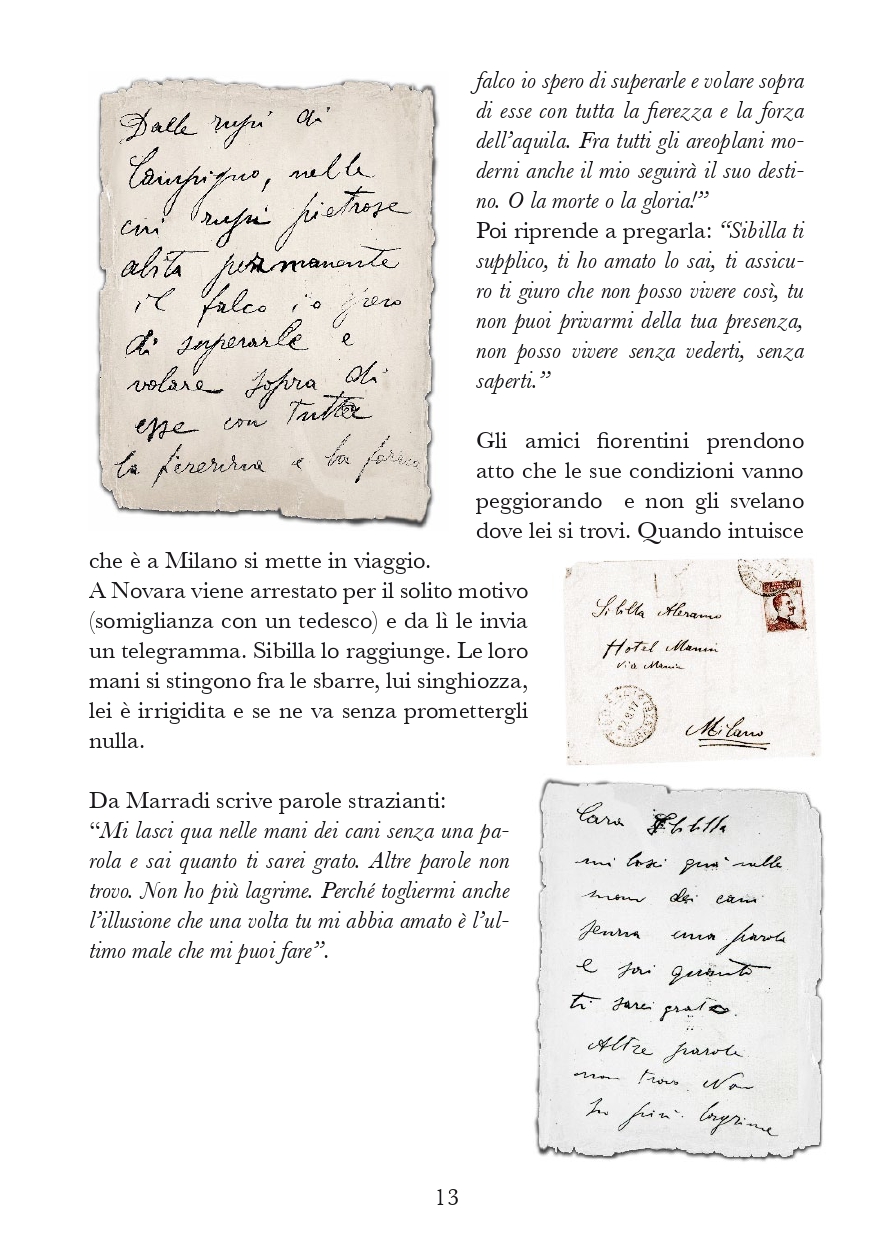 Dalle rupi di
Campigno, nelle
cui rupi pietrose
alita permanente
il falco io spero
di superarle e
volare sopra di
esse con tutta
la fierezza e la forza
falco io spero di superarle e volare sopra
di esse con tutta la fierezza e la forza
dell’aquila. Fra tutti gli areoplani mo-
derni anche il mio seguirà il suo desti-
no. O la morte o la gloria!”
Poi riprende a pregarla: “Sibilla ti
supplico, ti ho amato lo sai, ti assicu-
ro ti giuro che non posso vivere così, tu
non puoi privarmi della tua presenza,
non posso vivere senza vederti, senza
saperti.”
Gli amici fiorentini prendono
atto che le sue condizioni vanno
peggiorando e non gli svelano
dove lei si trovi. Quando intuisce
che è a Milano si mette in viaggio.
A Novara viene arrestato per il solito motivo
(somiglianza con un tedesco) e da lì le invia
un telegramma. Sibilla lo raggiunge. Le loro
mani si stingono fra le sbarre, lui singhiozza,
lei è irrigidita e se ne va senza promettergli
nulla.
Sibilla Aleramo
Hotel Manin
Via Manin
Milano
Da Marradi scrive parole strazianti:
“Mi lasci qua nelle mani dei cani senza una pa-
rola e sai quanto ti sarei grato. Altre parole non
trovo. Non ho più lagrime. Perché togliermi anche
l’illusione che una volta tu mi abbia amato è l’ul-
timo male che mi puoi fare”.
Cara Sibilla
mi lasci qua nelle
mani dei cani
senza una parola
e sai quanto
ti sarei grato.
Altre parole
non trovo. Non
ho più lagrime
13